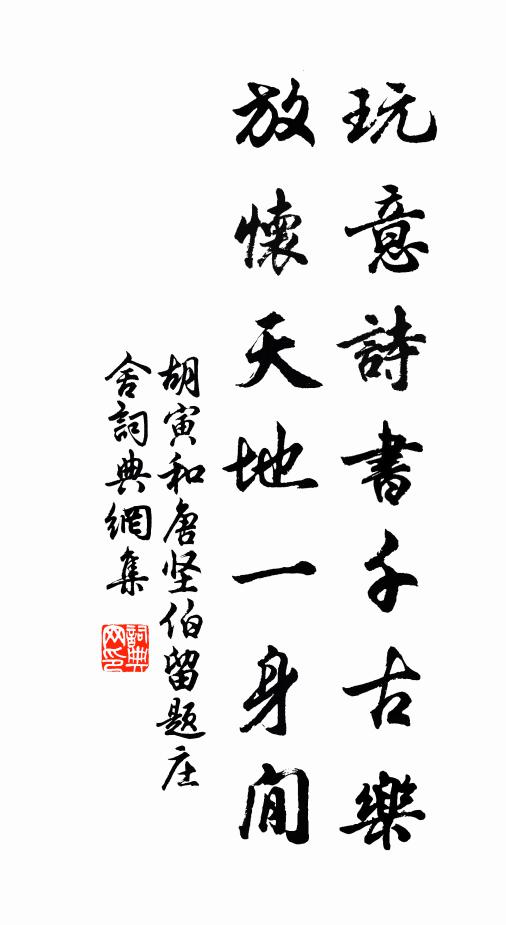 玩意詩書千古樂
放懷天地一身閒
胡寅和唐坚伯留题庄
舍詞典網集
詞典網印